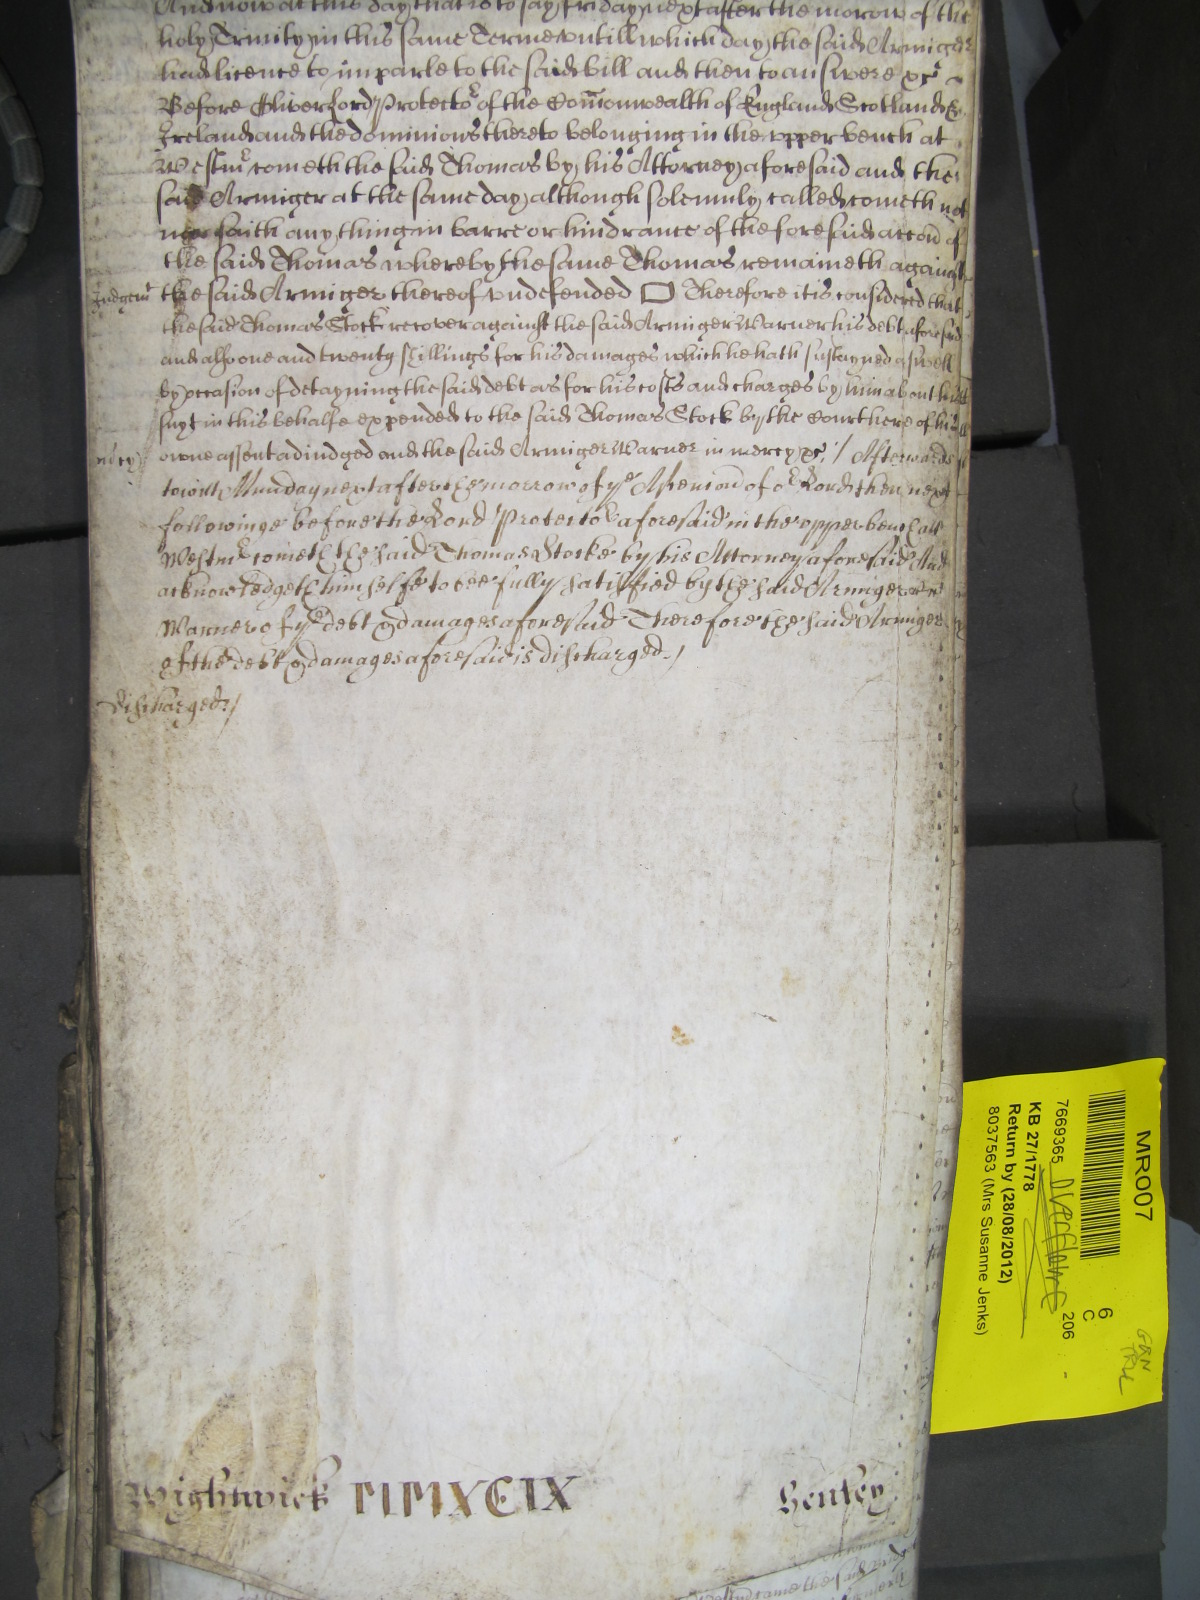 And now at this day that is to say friday next after the morow of the
holy Trinity in this same Terme untill which day the said Armiger
had licence to imparle to the said bill and then to answere &c
Before Oliver Lord Protector of the Com̄onwealth of England Scotland &
Ireland and the dominions thereto belonging in the upper bench at
Westmr cometh the said Thomas by his Attorney aforesaid and the
said Armiger at the same day although solemnly called cometh not
nor saith any thing in barre or hindrance of the foresaid accōn of
the said Thomas whereby the same Thomas remaineth against
Judgemt the said Armiger thereof undefended Therefore it is considered that
the said Thomas Stock recover against the said Armiger Warner his debt aforesaid
and also one and twenty shillings for his damages which he hath sustayned aswell
by occasion of detayning the said debt as for his costs and charges by him about his
suyt in this behalfe expended to the said Thomas Stock by the Court here of his
mercy owne assent adiudged and the said Armiger Warner in mercy &c / Afterwards
towitt Munday next after the morrow of ye Ascencōn of or Lord then next
followinge before the Lord Protector aforesaid in the upper bench att
Westmr cometh the said Thomas Stocke by his Attorney aforesaid And
acknowledgeth himselfe to bee fully satisfied by the said Armiger
Warner of ye debt & damages aforesaid Therefore the said Armiger
of the debt & damages aforesaid is discharged /
discharged /
Wightwick MMXCIX Henley
MR007
7669365
KB 27/1778
Return by (28/08/2012)
8037563 (Mrs Susanne Jenks)
6
C
206